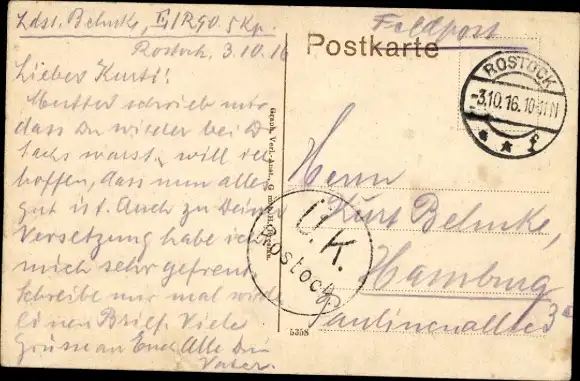 Ldst. Behncke, II/R90. 5 Kp.
Rostock, 3.10.16
Lieber Kurti!
Mutter schrieb mir
dass Du wieder bei D
warst, will ich
hoffen, dass nun alles
gut ist. Auch zu Deiner
Versetzung habe ich
mich sehr gefreut.
Schreibe mir mal wieder
einen Brief. Viele
Grüsse an Euch Alle Dein
Vater.
Feldpost
Postkarte
ROSTOCK
-3.10.16. 10-11 N
* * 1
Herrn
Kurt Behncke,
Hamburg
Paulinenallee 3
Ü.K.
Rostock.
5358